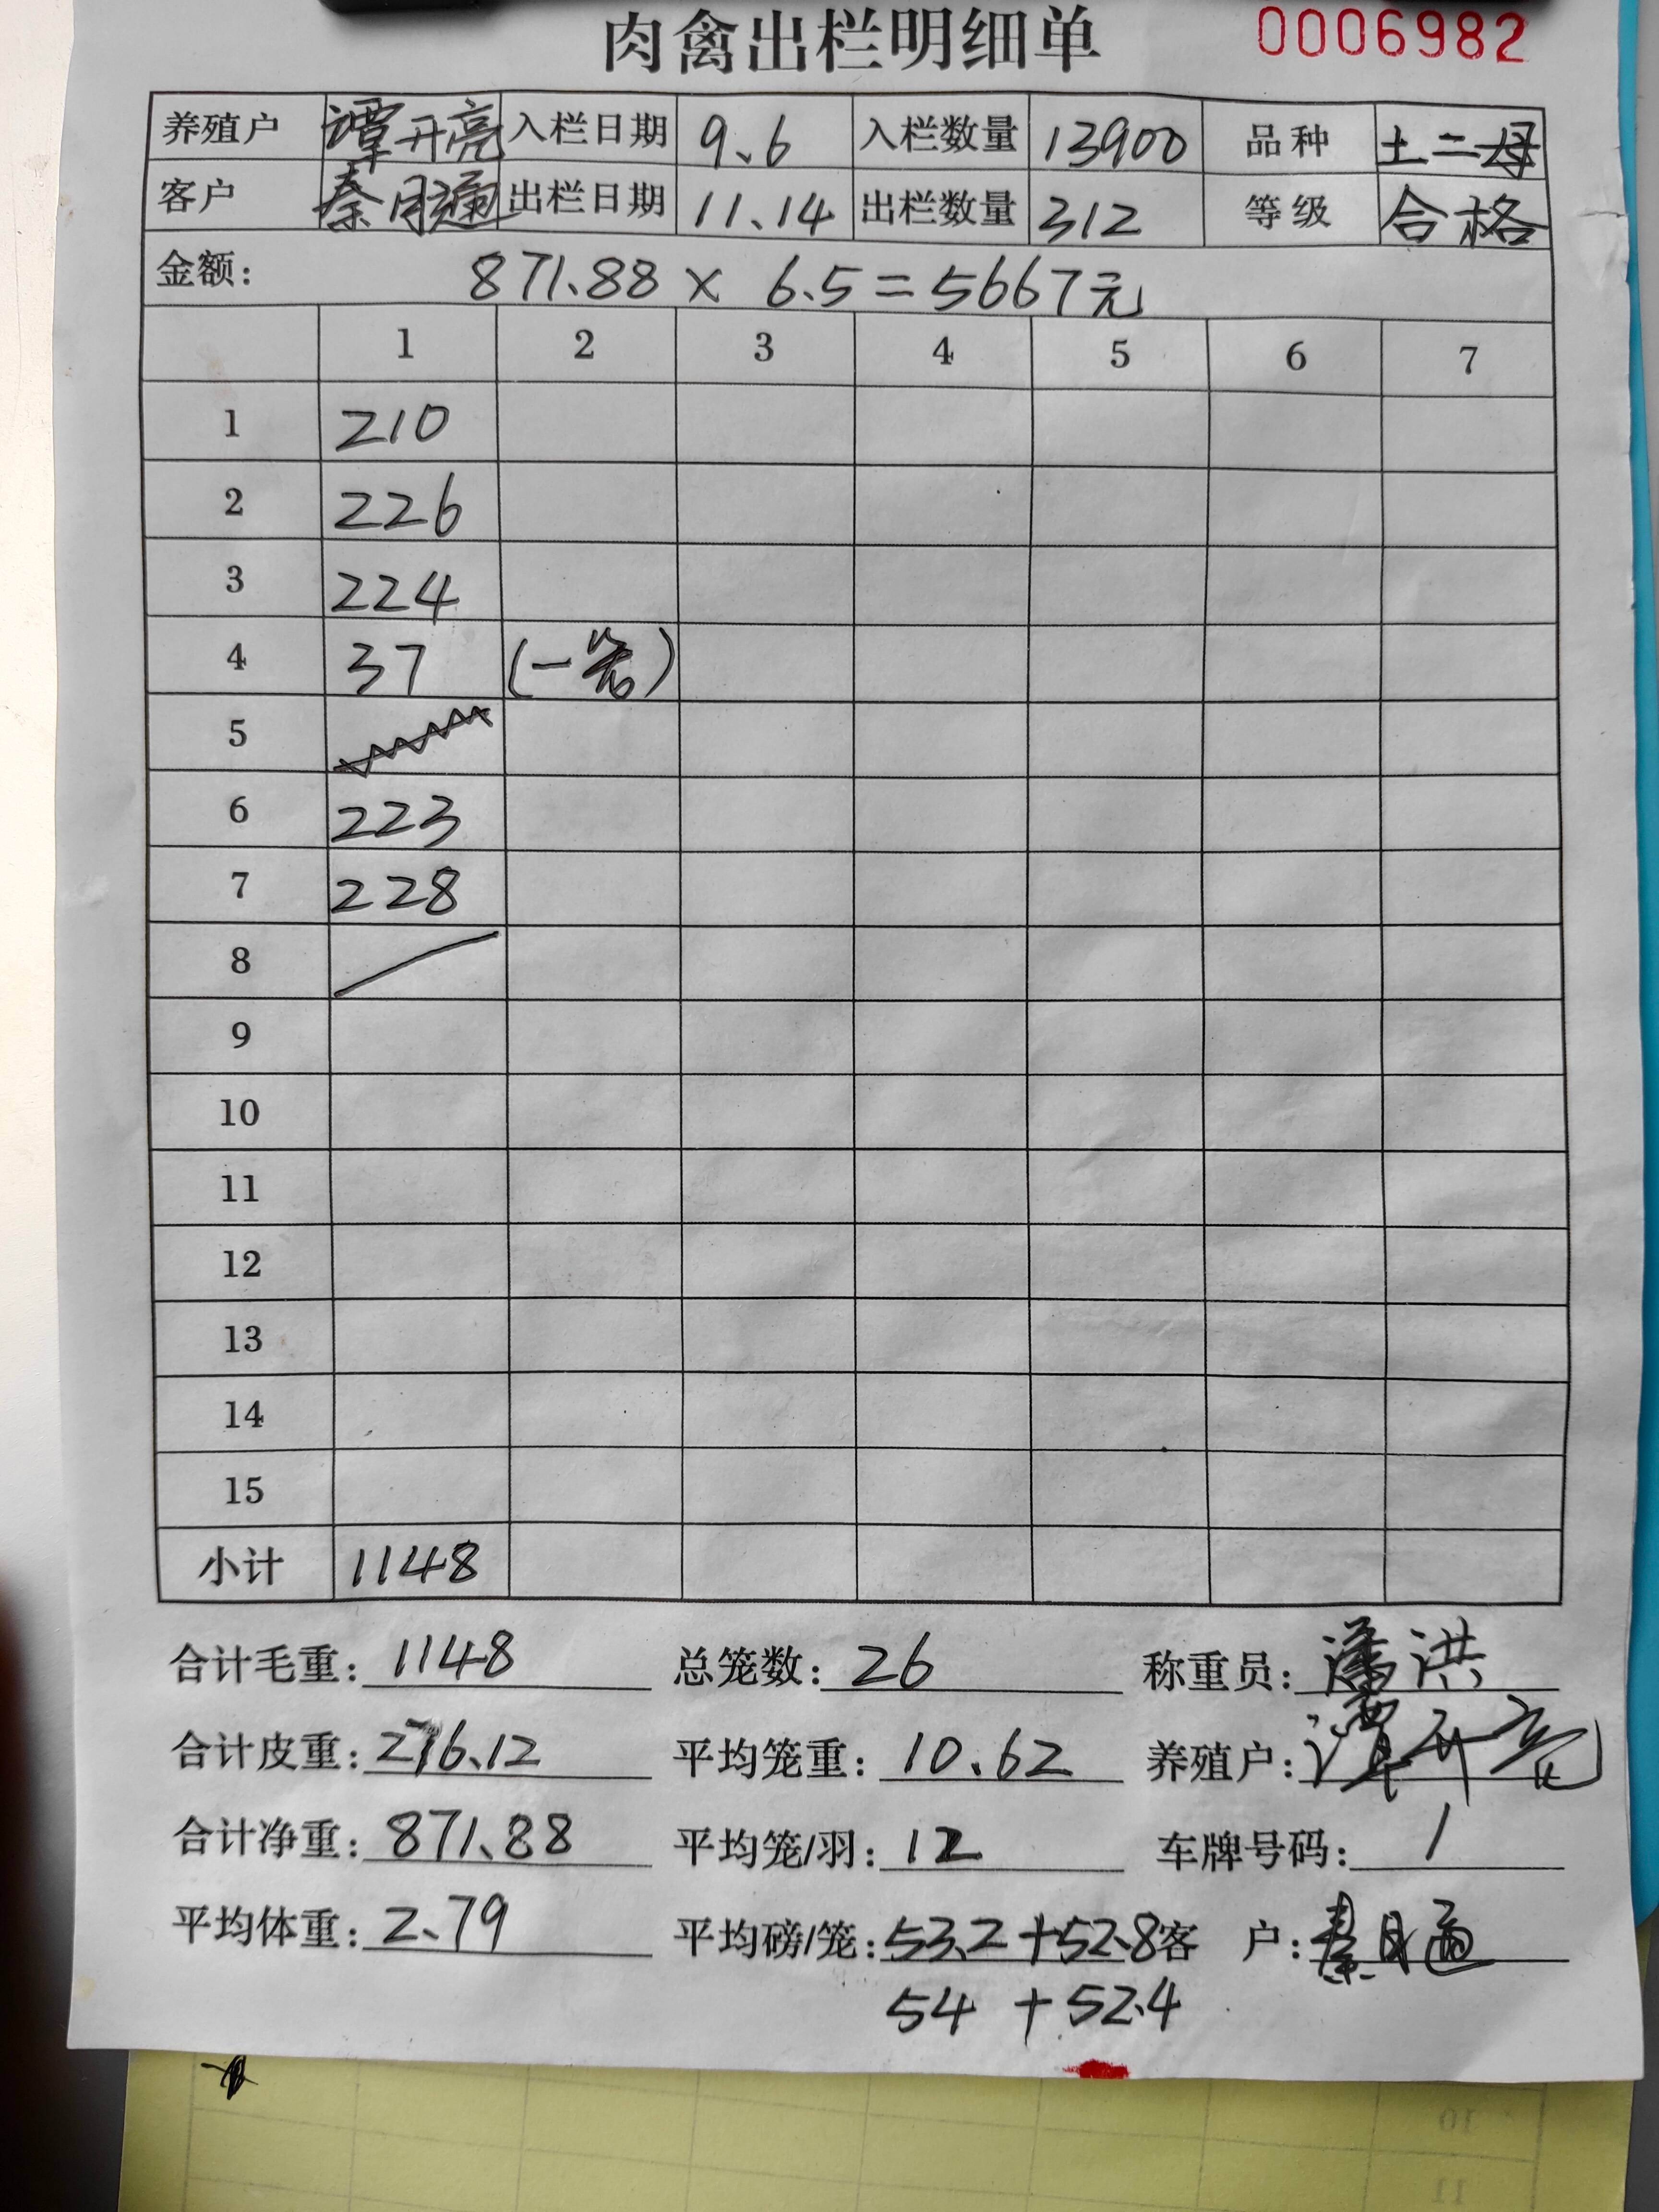 肉禽出栏明细单 0006982
养殖户 谭开亮 入栏日期 9.6 入栏数量 13900 品种 土二母
客户 秦月通 出栏日期 11.14 出栏数量 312 等级 合格
金额: 871.88 × 6.5=5667元
1 2 3 4 5 6 7
1 210
2 226
3 224
4 37 (一笼)
5
6 223
7 228
8
9
10
11
12
13
14
15
小计 1148
合计毛重: 1148 总笼数: 26 称重员: 潘洪
合计皮重: 276.12 平均笼重: 10.62 养殖户: 谭开亮
合计净重: 871.88 平均笼/羽: 12 车牌号码: /
平均体重: 2.79 平均磅/笼: 53.2+52.8 客 户: 秦月通
54 +52.4
10
11